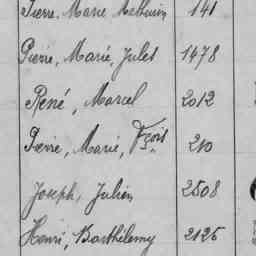 Pierre, Marie Mathurin 141
Pierre, Marie, Jules 1478
René, Marcel 2012
Pierre, Marie, Fçois 210
Joseph, Julien 2508
Henri, Barthélemy 2125